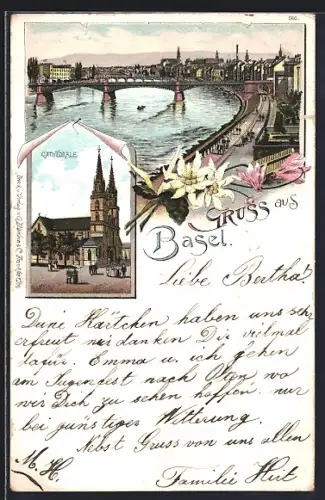 CATHEDRALE
GRUSS aus
Basel.
Liebe Bertha!
Deine Kärtchen haben uns sehr
erfreut wir danken Dir vielmal
dafür. Emma u. ich gehen
am Jugendfest nach Olten wo
wir Dich zu sehen hoffen. nur
bei günstiges Witterung.
Nebst Gruss von uns allen
M. H.
Familie